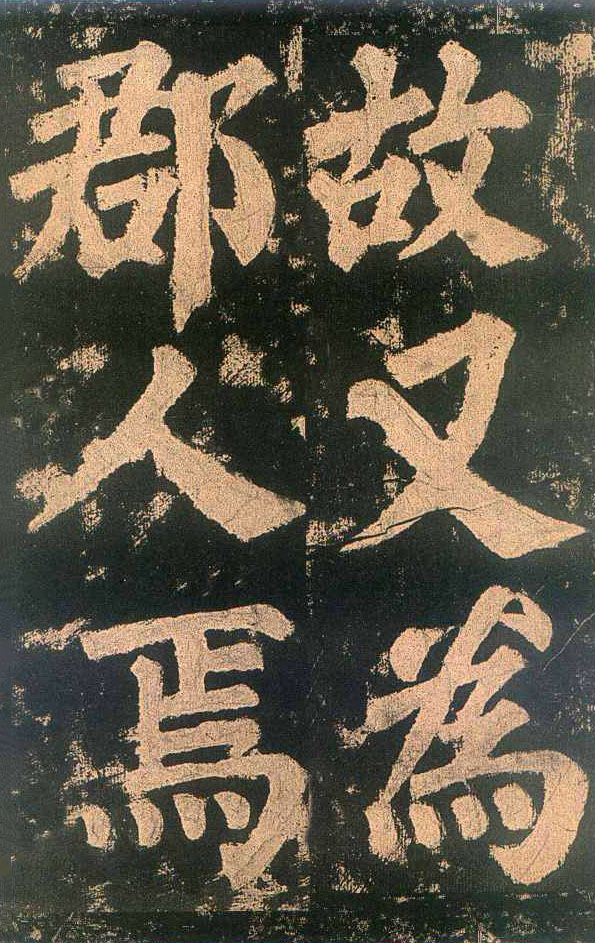 故又為
郡人焉